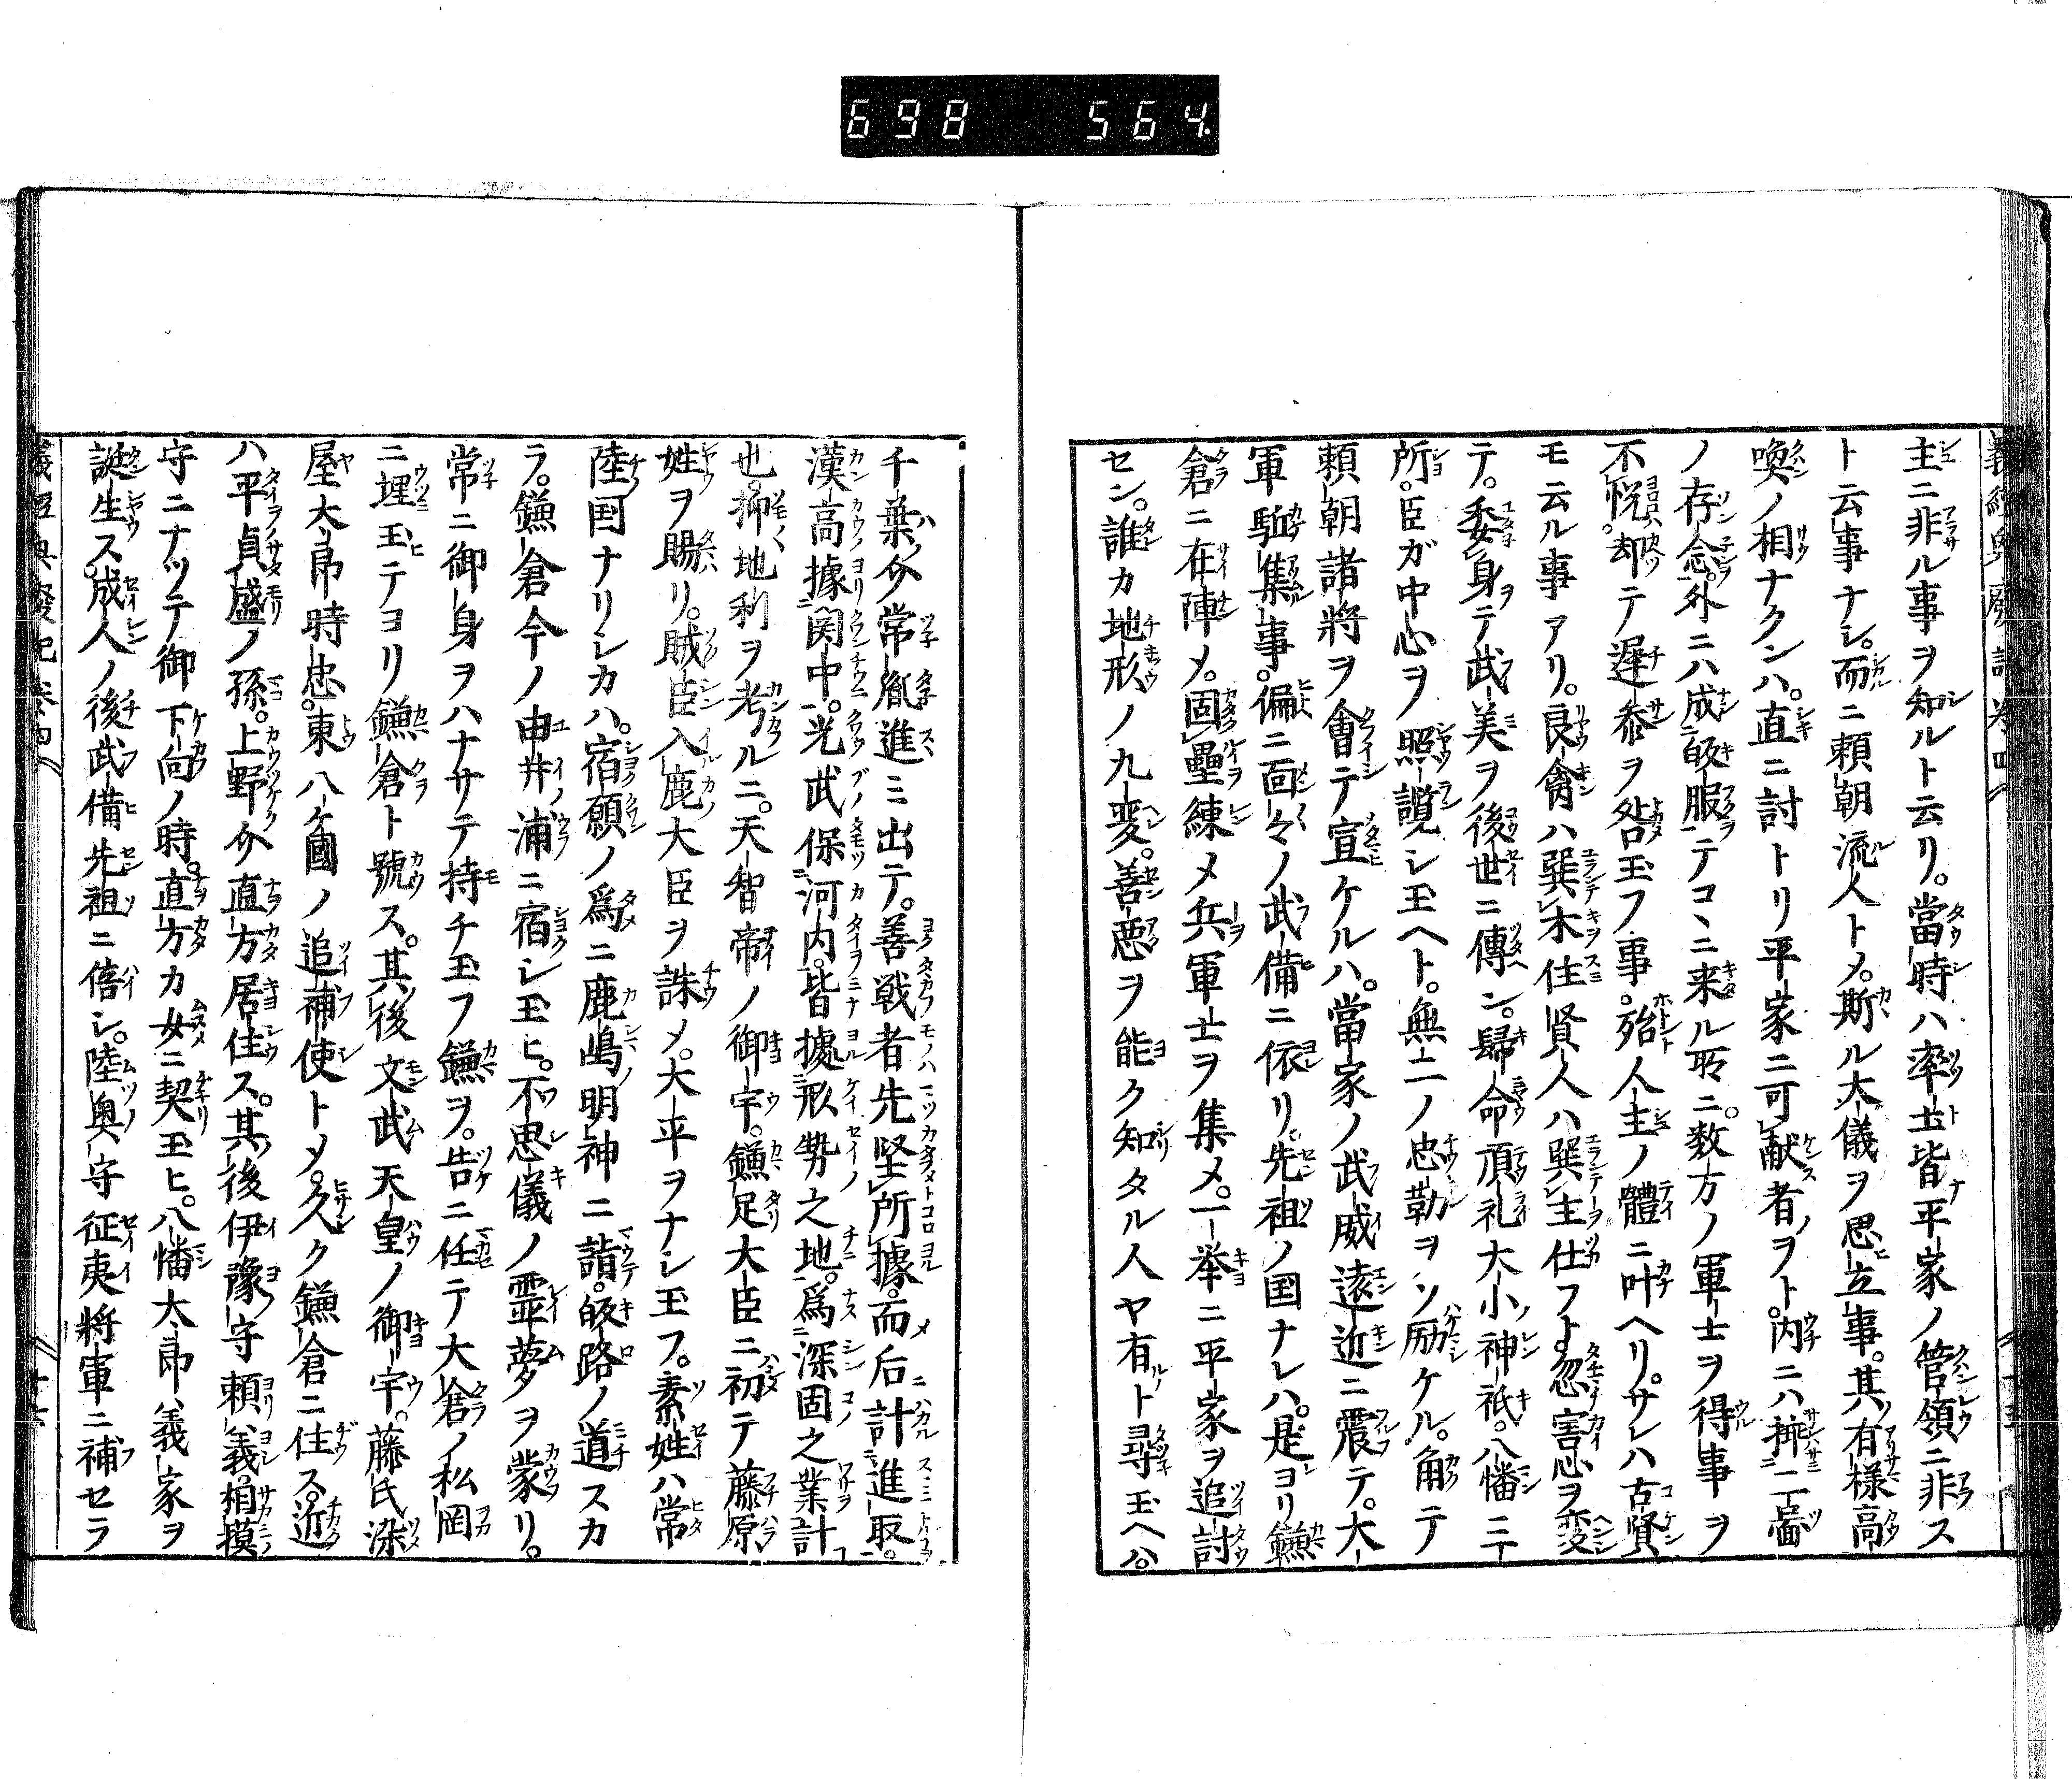 698 564
主ニ非ル事ヲ知ルト云リ。當時ハ率土皆平家ノ管領ニ非ス
ト云事ナシ。而ニ頼朝流人トメ。斯ル大儀ヲ思立事。其有様高
喚ノ相ナクンハ。直ニ討トリ平家ニ可献者ヲト。内ニハ挿二啚
ノ存念。外ニハ成皈服テコヽニ来ル所ニ。数方ノ軍士ヲ得事ヲ
不悦。却テ遅参ヲ咎玉フ事。殆人主ノ體ニ叶ヘリ。サレハ古賢
モ云ル事アリ。良禽ハ巽木住賢人ハ巽主仕フト忽害心ヲ変
テ。委身テ武美ヲ後世ニ傳ン。歸命頂礼大小神祇。八幡三
所。臣ガ中心ヲ照讃シ玉ヘト。無二ノ忠勤ヲソ励ケル。角テ
頼朝諸將ヲ會テ宣ケルハ。當家ノ武威遠近ニ震テ。大
軍駈集事。偏ニ面々ノ武備ニ依リ。先祖ノ国ナレハ。是ヨリ鎌
倉ニ在陣メ。固壘練メ兵軍士ヲ集メ。一挙ニ平家ヲ追討
セン。誰カ地形ノ九変。善悪ヲ能ク知タル人ヤ有ト尋玉ヘハ。
千葉介常胤進ミ出テ。善戦者先堅所據。而后計進取。
漢高據関中。光武保河内。皆據形勢之地。爲深固之業計
也。抑地利ヲ考ルニ。天智帝ノ御宇。鎌足大臣ニ初テ藤原
姓ヲ賜リ。賊臣入鹿大臣ヲ誅メ。大平ヲナシ玉フ。素姓ハ常
陸国ナリシカハ。宿願ノ爲ニ鹿嶋明神ニ詣。皈路ノ道スカ
ラ。鎌倉今ノ由井浦ニ宿シ玉ヒ。不思儀ノ霊夢ヲ蒙リ。
常ニ御身ヲハナサテ持チ玉フ鎌ヲ。告ニ任テ大倉ノ松岡
ニ埋玉テヨリ鎌倉ト號ス。其後文武天皇ノ御宇。藤氏染
屋大郎時忠。東八ケ國ノ追補使トメ。久ク鎌倉ニ住ス。近
ハ平貞盛ノ孫。上野介直方居住ス。其後伊豫守頼義。相摸
守ニナツテ御下向ノ時。直方カ女ニ契玉ヒ。八幡大郎義家ヲ
誕生ス。成人ノ後武備先祖ニ倍シ。陸奥守征夷將軍ニ補セラ